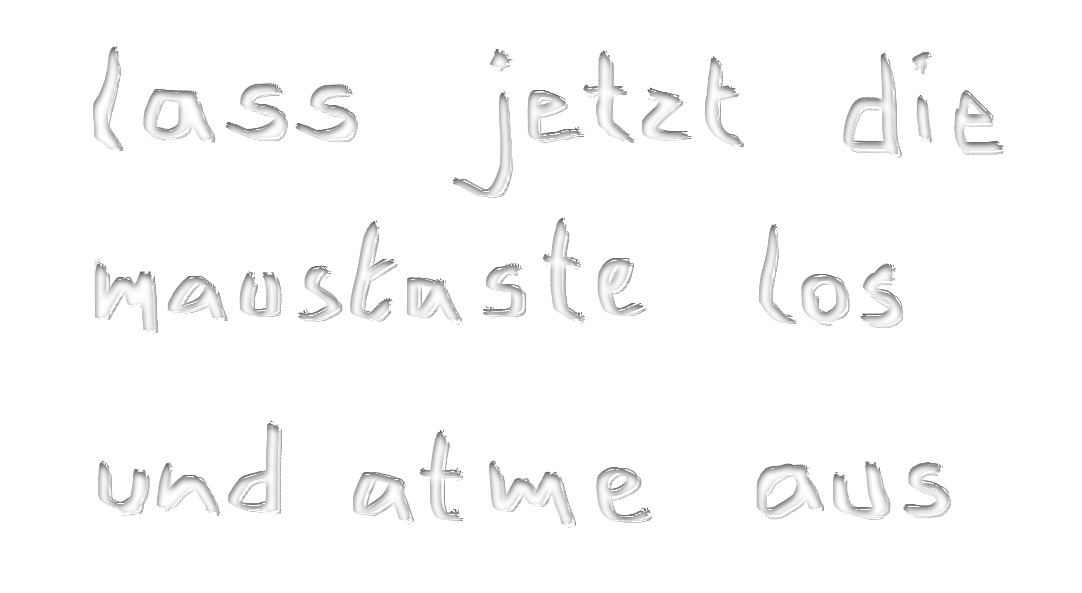 lass jetzt die
maustaste los
und atme aus